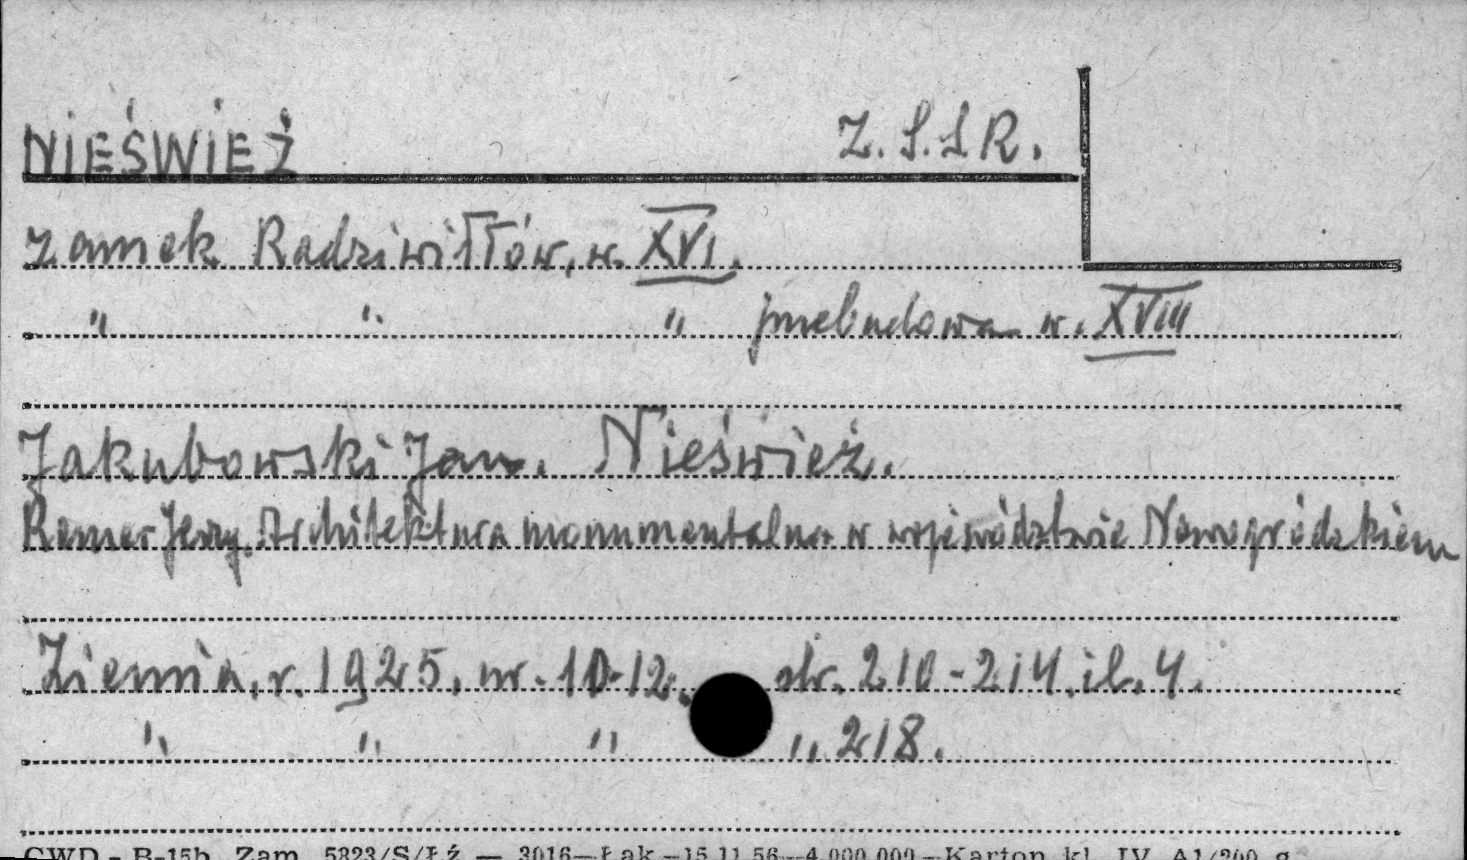 NIEŚWIEŻ Z.S.S.R.
zamek Radziwiłłów, w. XVI.
" " " przebudowa w. XVIII
Jakubowski Jan. Nieśwież.
Remer Jerzy. Architektura monumentalna w województwie Nowogródzkiem
Ziemia, r. 1925, nr. 10-12, str. 210-214, il. 4.
" " " " 218.
CWD - B-15b Zam. 5823/S/ŁŹ — 3016—Łąk—15.11.56—4.000.000—Karton kl. IV A1/200 g